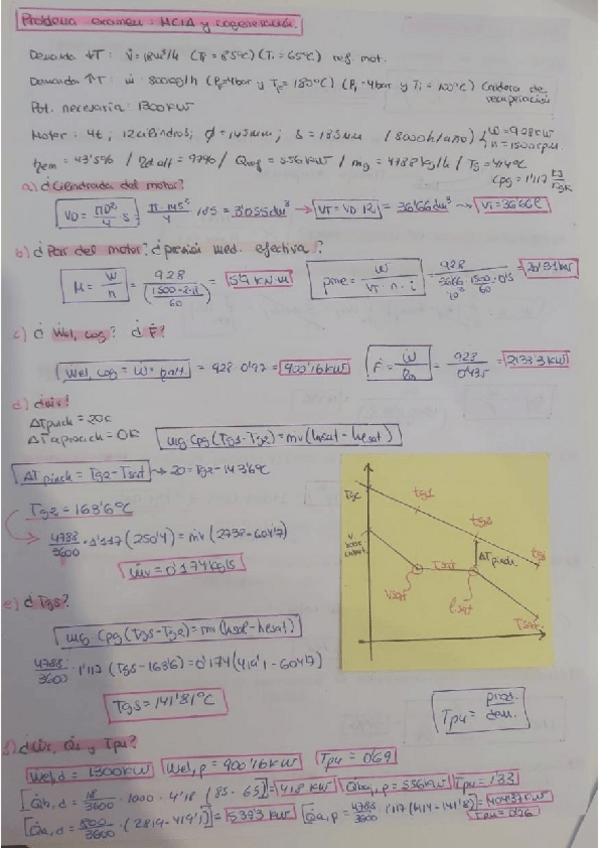 Problema examen: MCIA y cogeneración.
Demanda ↓T: V̇=18m³/h (Tf=85ºC) (Ti=65ºC) ref. mot.
Demanda ↑T: ṁ 800kg/h (Pf=4bar y Tf=180ºC) (Pi=4bar y Ti=100ºC) Caldera de recuperación
Pot. necesaria: 1300kW
Motor: 4t, 12cilindros, ϕ=145mm; S=185mm (8000h/año) Ẇ=928kW
n=1500rpm.
=43'5% / ηalt=97% / Qref=556kW / mg=4788kg/h / Tg=414ºC
cpg=1'117 kJ/kgK
a) ¿Cilindrada del motor?
VD = πD²/4 · S = π·145²/4 · 185 = 3'055dm³ → VT=VD· = 36'66dm³ → VT=36'66l
b) ¿Par del motor? ¿presión med. efectiva?
M = Ẇ/n = 928/(1500·2·π/60) = 5'9 kN·m
pme = Ẇ/(VT·n·i) = 928/(·1500/60·0'5) =
c) ¿Ẇel, cog? ¿Ḟ?
Ẇel, cog = Ẇ·ηalt = 928·0'97 = 900'16kW
Ḟ = Ẇ/ηe = 928/0'435 = 2133'3kW
d) ¿ṁv?
ΔTpinch = 20C
ΔTaproach = 0K
ṁg cpg(Tg1-Tg2) = ṁv(hvsat - hesat)
ΔTpinch = Tg2-Tsat → 20=Tg2-143'6ºC
Tg2=163'6ºC
4788/3600 · 1'117(250'4) = ṁv(2738-604'7)
ṁv=0'174kg/s
tg1
tg2
tg3
Tsat
ΔTpinch
Vsat
l.sat
e) ¿Tg3?
ṁg cpg(Tg3-Tg2) = ṁ(hsol-hesat)
4788/3600 · 1'117 (Tg3-163'6) = 0'174(419'1-604'7)
Tg3=141'81ºC
Tpu = prod./dem.
f) y Tpu?
Ẇel,d=1300kW Ẇel,p=900'16kW Tpu=0'69
[Q̇b,d = 18/3600 · 1000 · 4'18 (85-65)] = 418 kW Q̇b,p=556kW Tpu=1'33
[Q̇a,d = 800/3600 · (2819-419'1)] = 539'3kW [Q̇a,p = 4788/3600 · 1'117(414-141'8)] = 404'37kW
Tpu=0'76